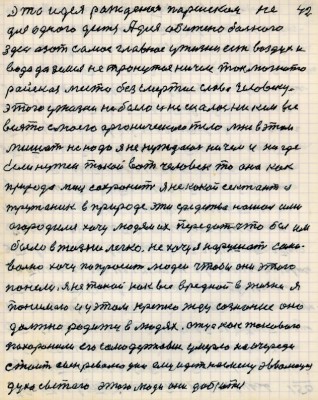 Это идея рождения парнской не 42
для одного дитя, А для обижено больного
здесь азот самое главное условия есть воздух и
вода да земля не тронутая ничем только можно то
райское место без смертие слава человеку
этого у жизни не было и не сказано никем все
взято с моего органического тела мне в этом
мешают не надо я не нуждаюсь ни чем и нигде
Если нужен такой вот человек то она как
природа мои сохранит я не какой сектант а
труженик в природе эти средства нашол или
огородил хочу людям их передать что бы им
было в жизни легко, не хочу я нарушать само-
вольно хочу попросить людей чтобы они этого
поняли, я не такой как все вредной в жизни я
понимаю и у этом крепко жду сознание оно
должно родится в людях, а то как такового
похоронили его само державши умерло на очереди
стоит
духа святаго этого люди они добьются